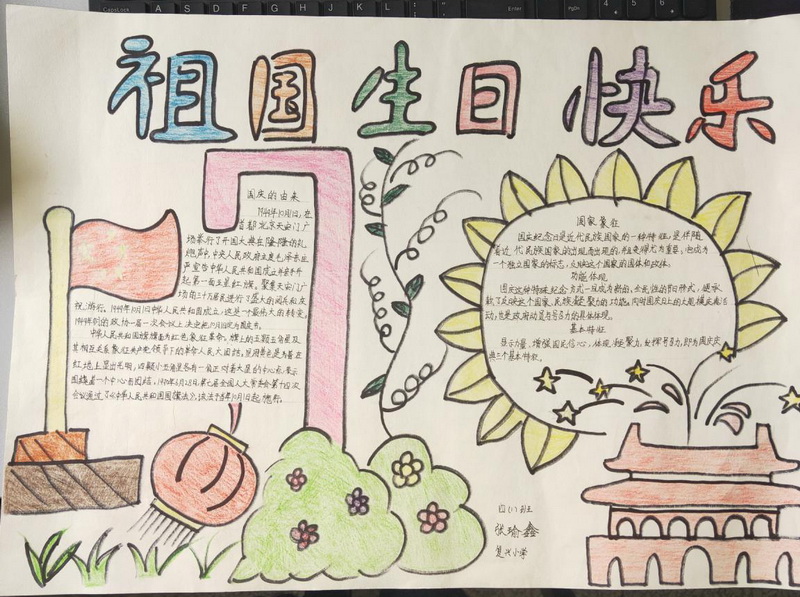 祖国生日快乐
国庆的由来
1949年10月1日,在
首都北京天安门广
场举行了开国大典,在隆隆的礼
炮声中,中央人民政府主席毛泽东庄
严宣告中华人民共和国成立并亲手升
起第一面五星红旗。聚集天安门广
场的三十万军民进行了盛大的阅兵和庆
祝游行。1949年10月1日中华人民共和国成立,这是一个最伟大的转变。
中华人民共和国国旗旗面为红色,象征革命。旗上的五颗五角星及
其相互关系象征共产党领导下的革命人民大团结。
红地上显出光明,四颗小五角星各有一角正对着大星的中心点,表示
围绕着一个中心而团结。1990年6月28日,第七届全国人大常委会第十四次
会议通过了《中华人民共和国国旗法》,该法于当年10月1日起施行。
国家象征
国庆纪念日是近代民族国家的一种特征,是伴随
着近代民族国家的出现而出现的,并且变得尤为重要。它成为
一个独立国家的标志,反映这个国家的国体和政体。
功能体现
国庆这种特殊纪念方式一旦成为新的、全民性的节日形式,便承
载了反映这个国家、民族凝聚力的功能。同时国庆日上的大规模庆典活
动,也是政府动员与号召力的具体体现。
基本特征
显示力量、增强国民信心,体现凝聚力,发挥号召力,即为国庆庆
典三个基本特征。
四(1)班
张瑜鑫
复兴小学